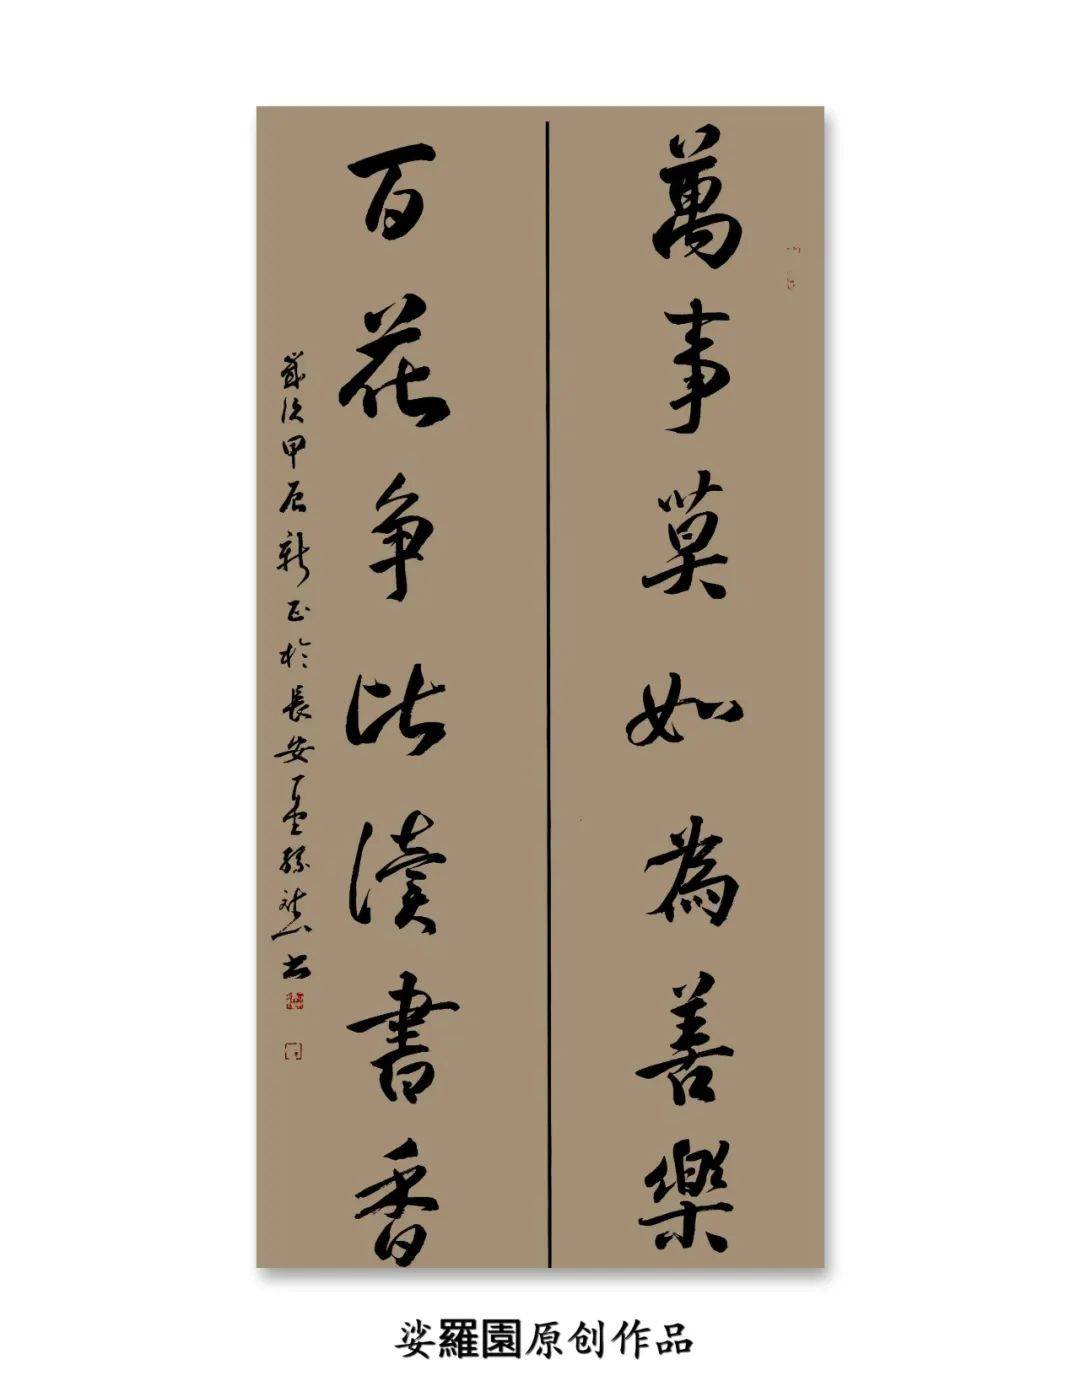 萬事莫如為善樂
百花争比讀書香
歲次甲辰新正於長安
書
娑羅園原创作品